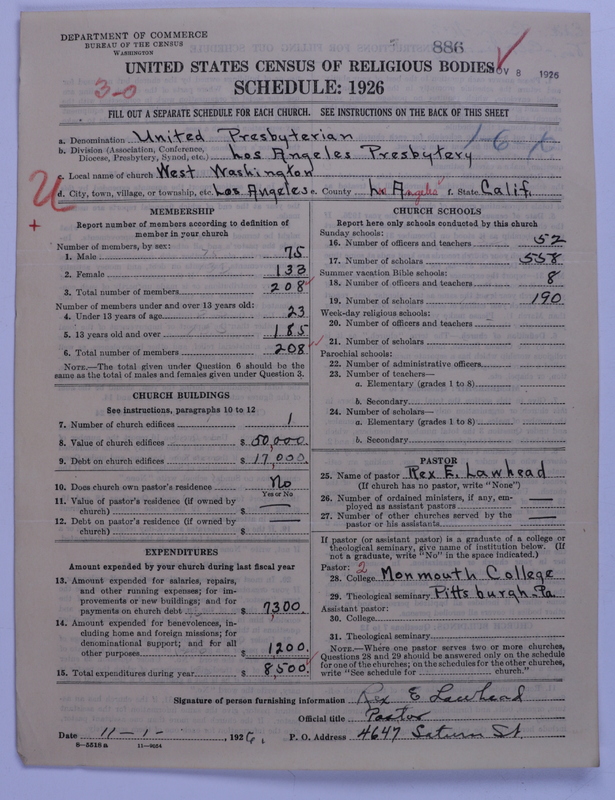 DEPARTMENT OF COMMERCE
BUREAU OF THE CENSUS
WASHINGTON
886
NOV 8 1926
UNITED STATES CENSUS OF RELIGIOUS BODIES
3-0
SCHEDULE: 1926
FILL OUT A SEPARATE SCHEDULE FOR EACH CHURCH. SEE INSTRUCTIONS ON THE BACK OF THIS SHEET
a. Denomination United Presbyterian
b. Division (Association, Conference, Diocese, Presbytery, Synod, etc.) Los Angeles Presbytery
c. Local name of church West Washington
d. City, town, village, or township, etc. Los Angeles e. County Los Angeles f. State Calif.
MEMBERSHIP
Report number of members according to definition of member in your church
Number of members, by sex:
1. Male 75
2. Female 133
3. Total number of members 208
Number of members under and over 13 years old:
4. Under 13 years of age 23
5. 13 years old and over 185
6. Total number of members 208
NOTE.—The total given under Question 6 should be the same as the total of males and females given under Question 3.
CHURCH BUILDINGS
See instructions, paragraphs 10 to 12
7. Number of church edifices 1
8. Value of church edifices $ 50,000.
9. Debt on church edifices $ 17,000.
10. Does church own pastor's residence No
Yes or No
11. Value of pastor's residence (if owned by church) $ —
12. Debt on pastor's residence (if owned by church) $ —
EXPENDITURES
Amount expended by your church during last fiscal year
13. Amount expended for salaries, repairs, and other running expenses; for improvements or new buildings; and for payments on church debt $ 7,300.
14. Amount expended for benevolences, including home and foreign missions; for denominational support; and for all other purposes $ 1200.
15. Total expenditures during year $ 8,500.
CHURCH SCHOOLS
Report here only schools conducted by this church
Sunday schools:
16. Number of officers and teachers 52
17. Number of scholars 558
Summer vacation Bible schools:
18. Number of officers and teachers 8
19. Number of scholars 190
Week-day religious schools:
20. Number of officers and teachers
21. Number of scholars
Parochial schools:
22. Number of administrative officers
23. Number of teachers—
a. Elementary (grades 1 to 8)
b. Secondary
24. Number of scholars—
a. Elementary (grades 1 to 8)
b. Secondary
PASTOR
25. Name of pastor Rex E. Lawhead
(If church has no pastor, write "None")
26. Number of ordained ministers, if any, employed as assistant pastors —
27. Number of other churches served by the pastor or his assistants —
If pastor (or assistant pastor) is a graduate of a college or theological seminary, give name of institution below. (If not a graduate, write "No" in the space indicated.)
Pastor: 2
28. College Monmouth College
29. Theological seminary Pittsburgh Pa.
Assistant pastor:
30. College
31. Theological seminary
NOTE.—Where one pastor serves two or more churches, Questions 28 and 29 should be answered only on the schedule for one of the churches; on the schedules for the other churches, write "See schedule for church."
Signature of person furnishing information Rex E Lawhead
Official title Pastor
Date 11-1-, 1926. P. O. Address 4647 Saturn St.
8-5518a 11-9054